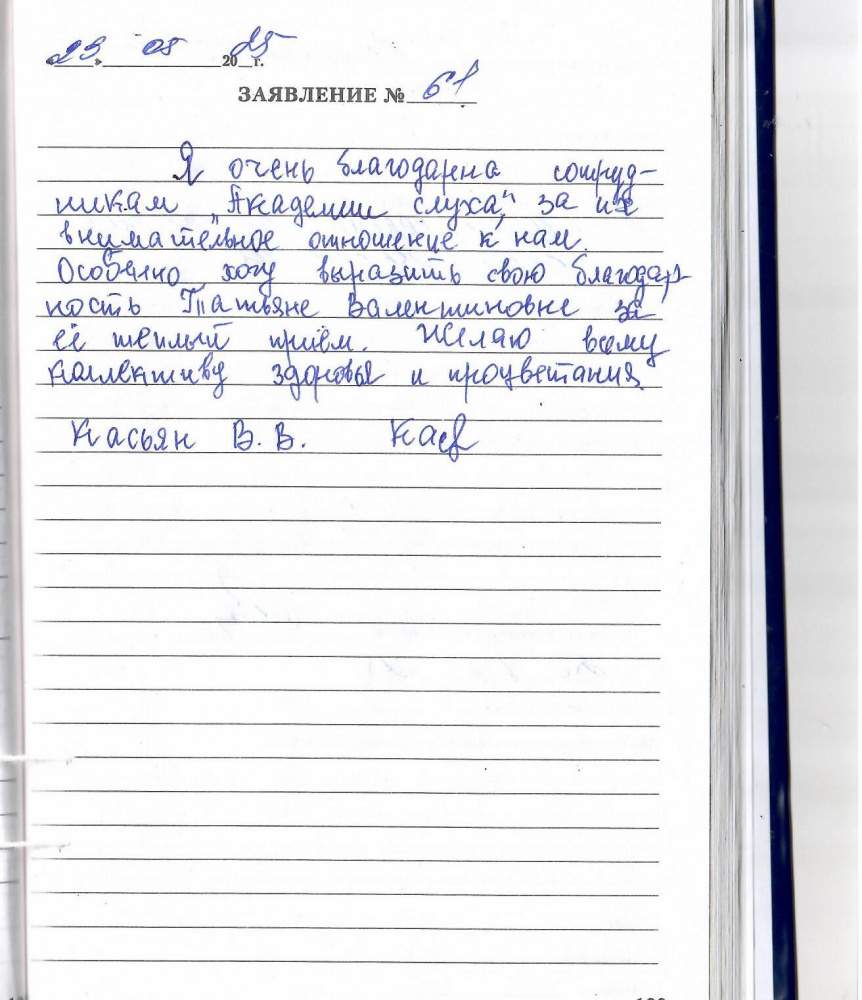 «23» 05 2025 г.
ЗАЯВЛЕНИЕ № 61
Я очень благодарна сотруд-
никам „Академии слуха", за их
внимательное отношение к нам.
Особенно хочу выразить свою благодар
ность Татьяне Валентиновне за
её теплый приём. Желаю всему
коллективу здоровья и процветания
Касьян В.В. Кас